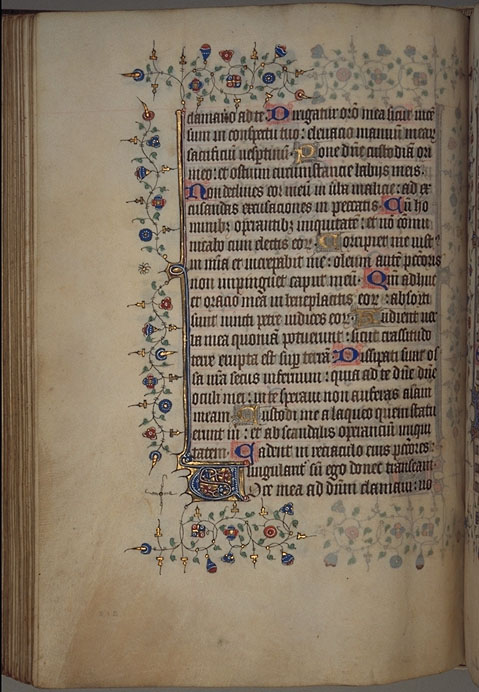 clamavero ad te. Dirigatur orō mea sicut ince
sum in conspectu tuo: elevacio manuum mear
sacrificiū vespertinū. Pone dn̄e custodiā ori
meo: et ostium circumstantie labijs meis.
Non declines cor meū in v̄ba malicie: ad ex
cusandas excusaciones in peccatis. Cū ho
minibȝ operantibȝ iniquitatē: et nō cōmu
nicabo cum electis eoꝝ. Corripiet me iustꝰ
in mīa et increpabit me: oleum autē pctōris
non impinguet caput meū. Qm̄ adhuc
et oracio mea in beneplacitis eoꝝ: absorti
sunt iuncti petre iudices eoꝝ. Audient ver
ba mea quoniā potuerunt: sicut crassitudo
terre erupta est sup terrā. Dissipata sunt os
sa nr̄a secus infernum: quia ad te dn̄e dn̄e
oculi mei: in te speravi non auferas aīam
meam. Custodi me a laqueo quem statu
erunt m̄: et ab scandalis operanciū iniqui
tatem. Cadent in reciaculo eius pctōres:
singularit̄ sū ego donec transeam.
Voce mea ad dn̄m clamavi: vo